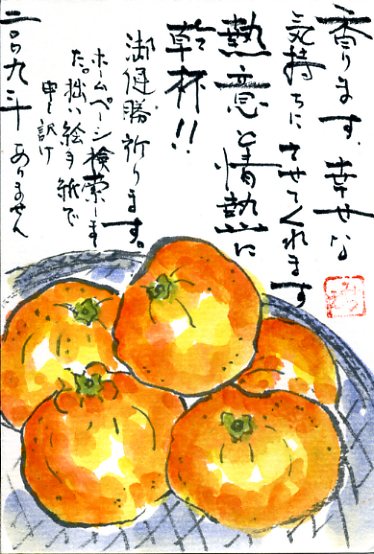 香ります、幸せな
気持ちにさせてくれます
熱意と情熱に
乾杯!!
御健勝祈ります。
ホームページ検索しまし
た。拙い絵手紙で
申し訳け
ありません
二〇〇九、三、十